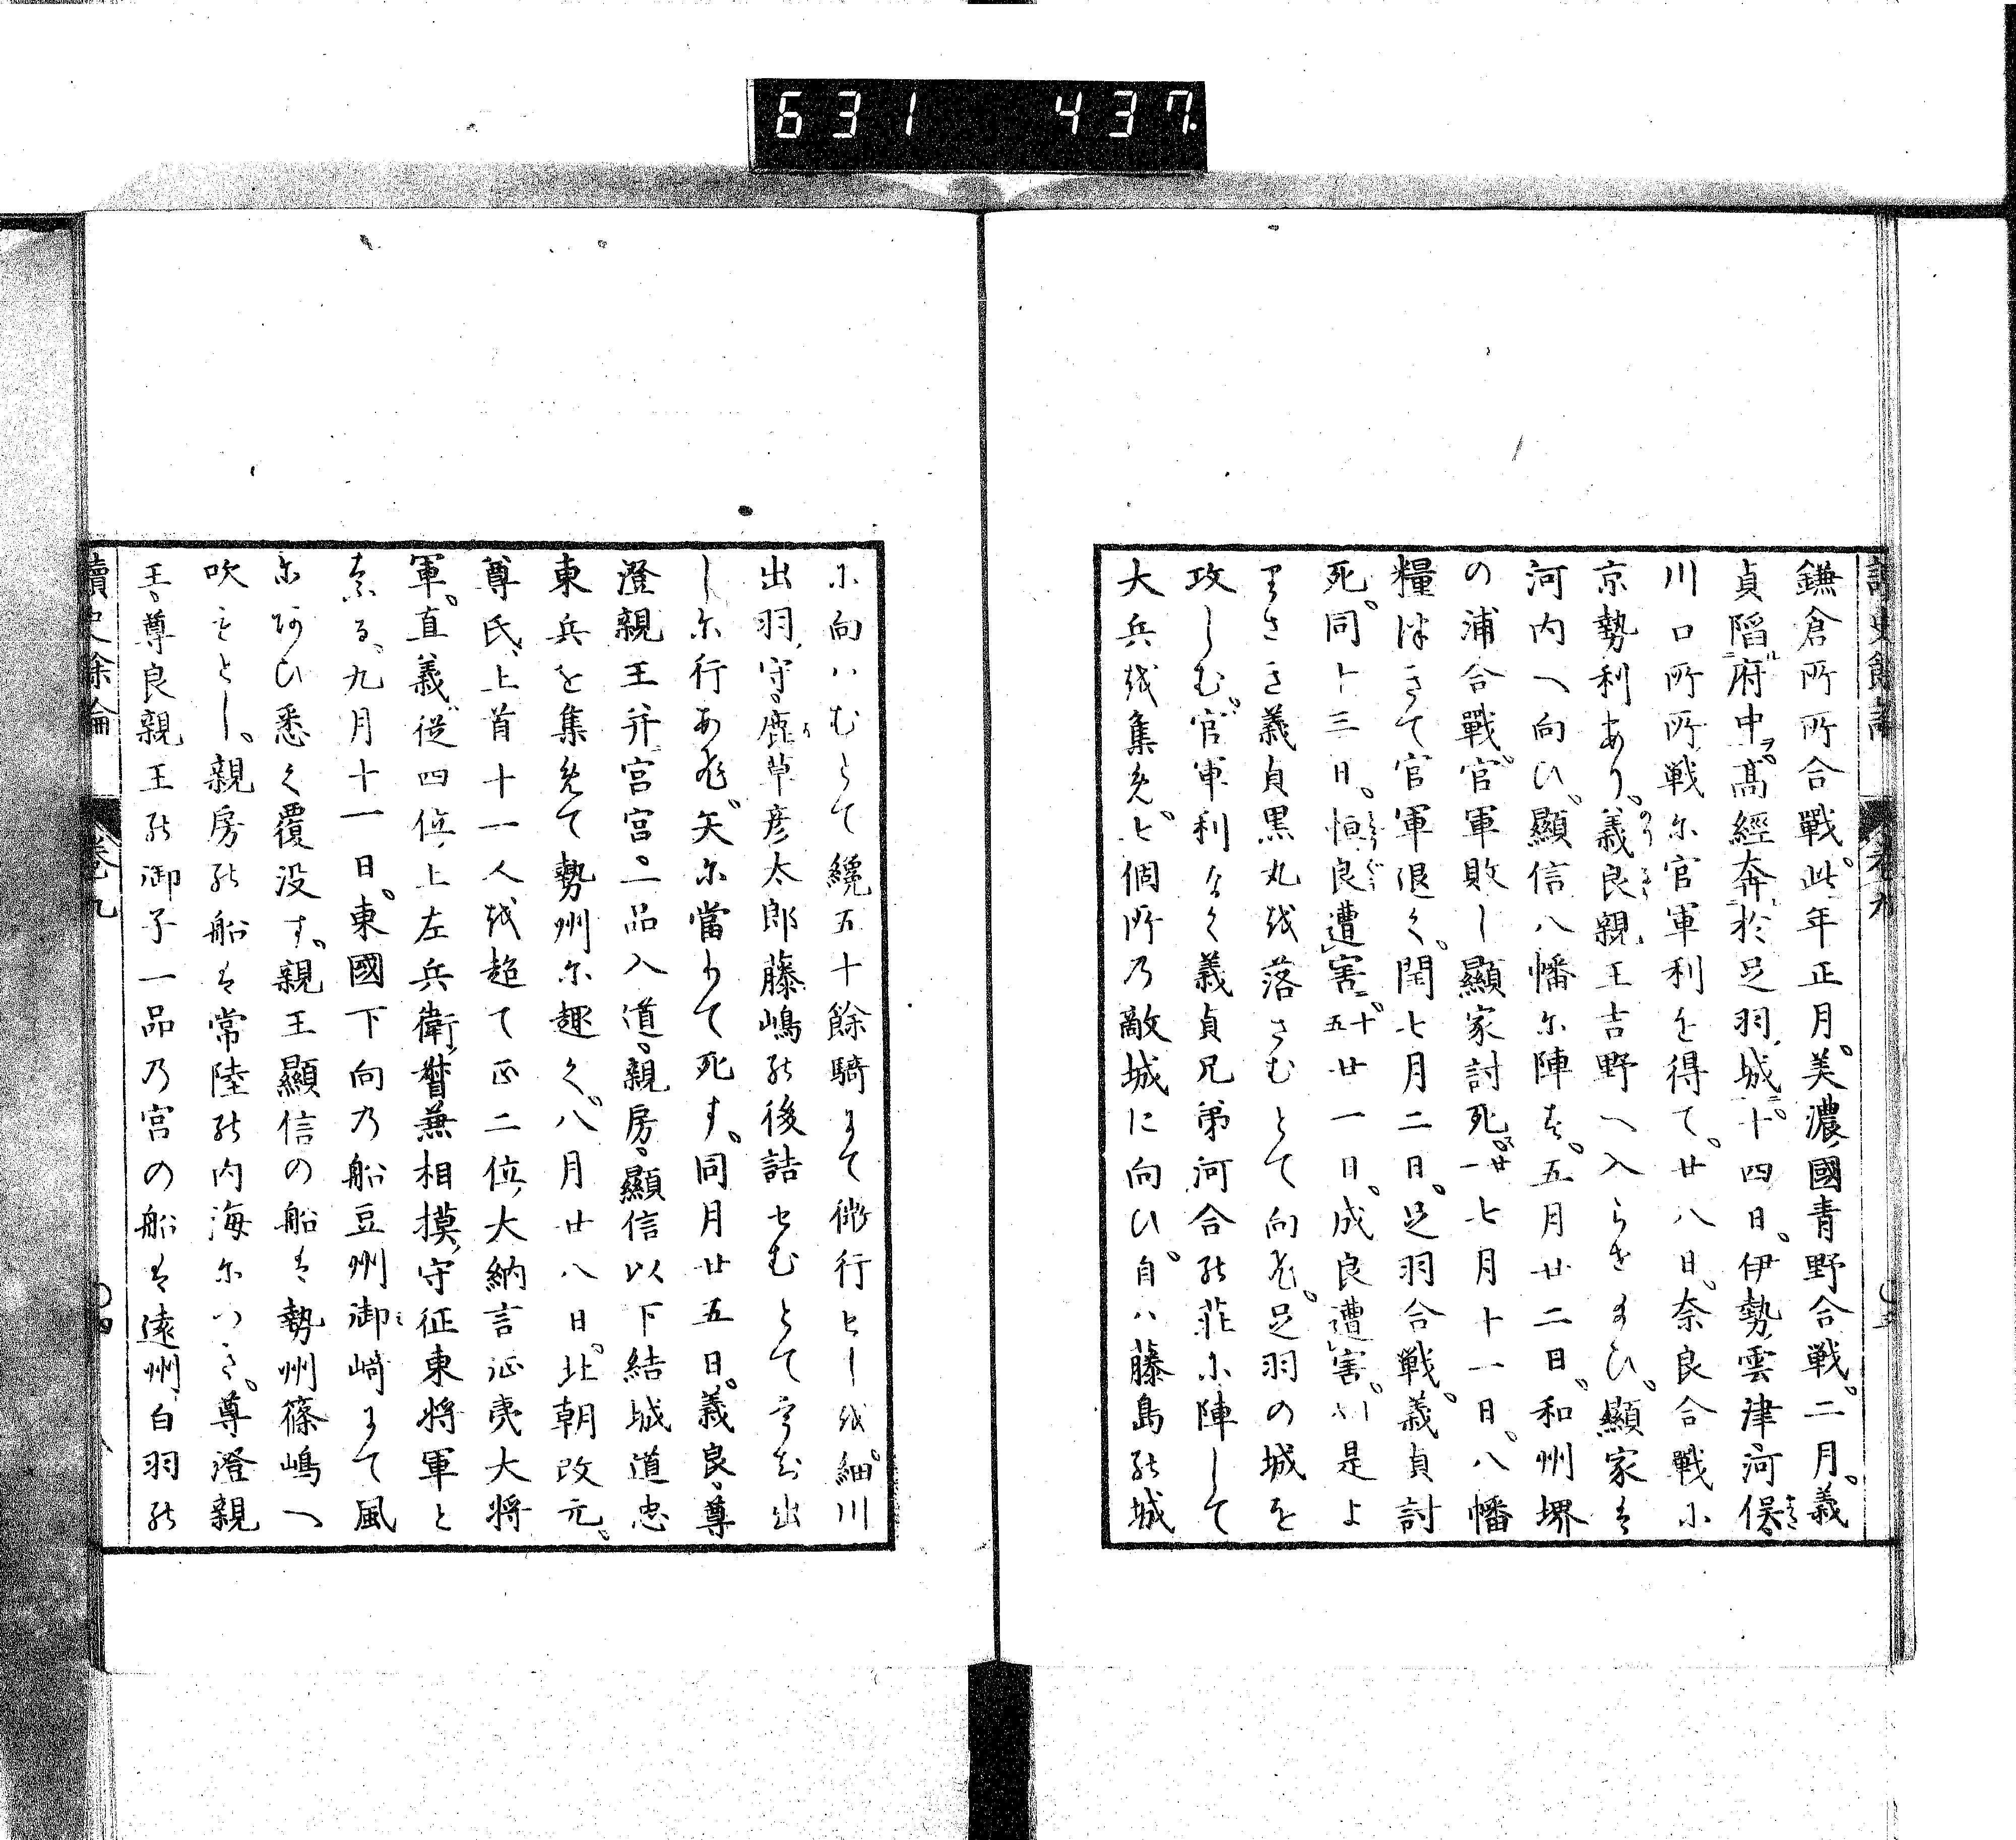 631 437.
讀史餘論 卷九
鎌倉所所合戰。此年正月。美濃國青野合戦。二月。義
貞陷府中。高經奔於足羽城。十四日。伊勢雲津河俣。
川口所所戦尓官軍利を得て。廿八日。奈良合戰小
京勢利あり。義良親王吉野へ入らせ玉ひ。顯家は
河内へ向ひ。顯信八幡尓陣す。五月廿二日。和州堺
の浦合戰。官軍敗し顯家討死。廿一七月十一日。八幡
糧つきて官軍退く。閏七月二日。足羽合戦。義貞討
死。同十三日。恒良遭害。十五廿一日。成良遭害。是よ
りさき義貞黒丸越落さむとて向ふ。足羽の城を
攻しむ。官軍利なく義貞兄弟河合能荘小陣して
大兵越集免。七個所乃敵城に向ひ。自ハ藤島能城
小向ハむとて纔五十餘騎まて微行せし越。細川
出羽守。鹿草彦太郎藤嶋能後詰せむとて出
し尓行あふ。矢尓當りて死す。同月廿五日。義良。尊
澄親王并宮宮。二品入道。親房。顯信以下結城道忠
東兵を集免て勢州尓趣く。八月廿八日。北朝改元。
尊氏。上首十一人越超て正二位。大納言征夷大将
軍。直義。従四位上左兵衛督兼相摸守征東将軍と
奈る。九月十一日。東國下向乃船豆州御崎まて風
尓阿ひ悉く覆没す。親王顯信の船は勢州篠嶋へ
吹もとし。親房能船は常陸能内海尓つき。尊澄親
王。尊良親王能御子一品乃宮の船は遠州白羽能
讀史餘論 卷九